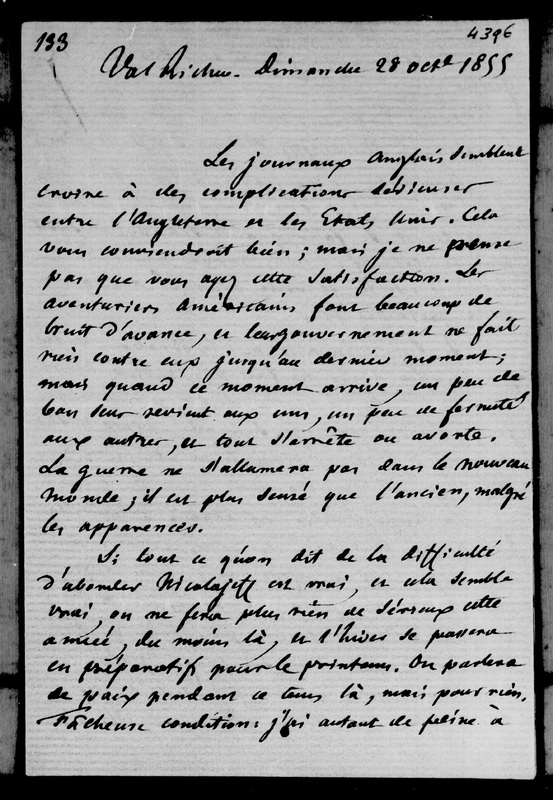 133
4396
Val Richer. Dimanche 28 octe 1855
Les journaux Anglais semblent
croire à des complications sérieuses
entre l'Angleterre et les Etats Unis. Cela
vous conviendroit bien ; mais je ne pense
pas que vous ayez cette satisfaction. Les
aventuriers Américains font beaucoup de
bruit d'avance, et leur gouvernement ne fait
rien contre eux jusqu'au dernier moment ;
mais quand ce moment arrive, un peu de
bon sens revient aux uns, un peu de fermeté
aux autres, et tout s'arrête ou avorte.
La guerre ne s'allumera pas dans le nouveau
monde ; il est plus sensé que l'ancien, malgré
les apparences.
Si tout ce qu'on dit de la difficulté
d'aborder Nicolajeff est vrai, et cela semble
vrai, on ne fera plus rien de sérieux cette
année, du moins là, et l'hiver se passera
en préparatifs pour le printems. On parlera
de paix pendant ce tems là, mais pour rien.
Fâcheuse condition : j'ai autant de peine à